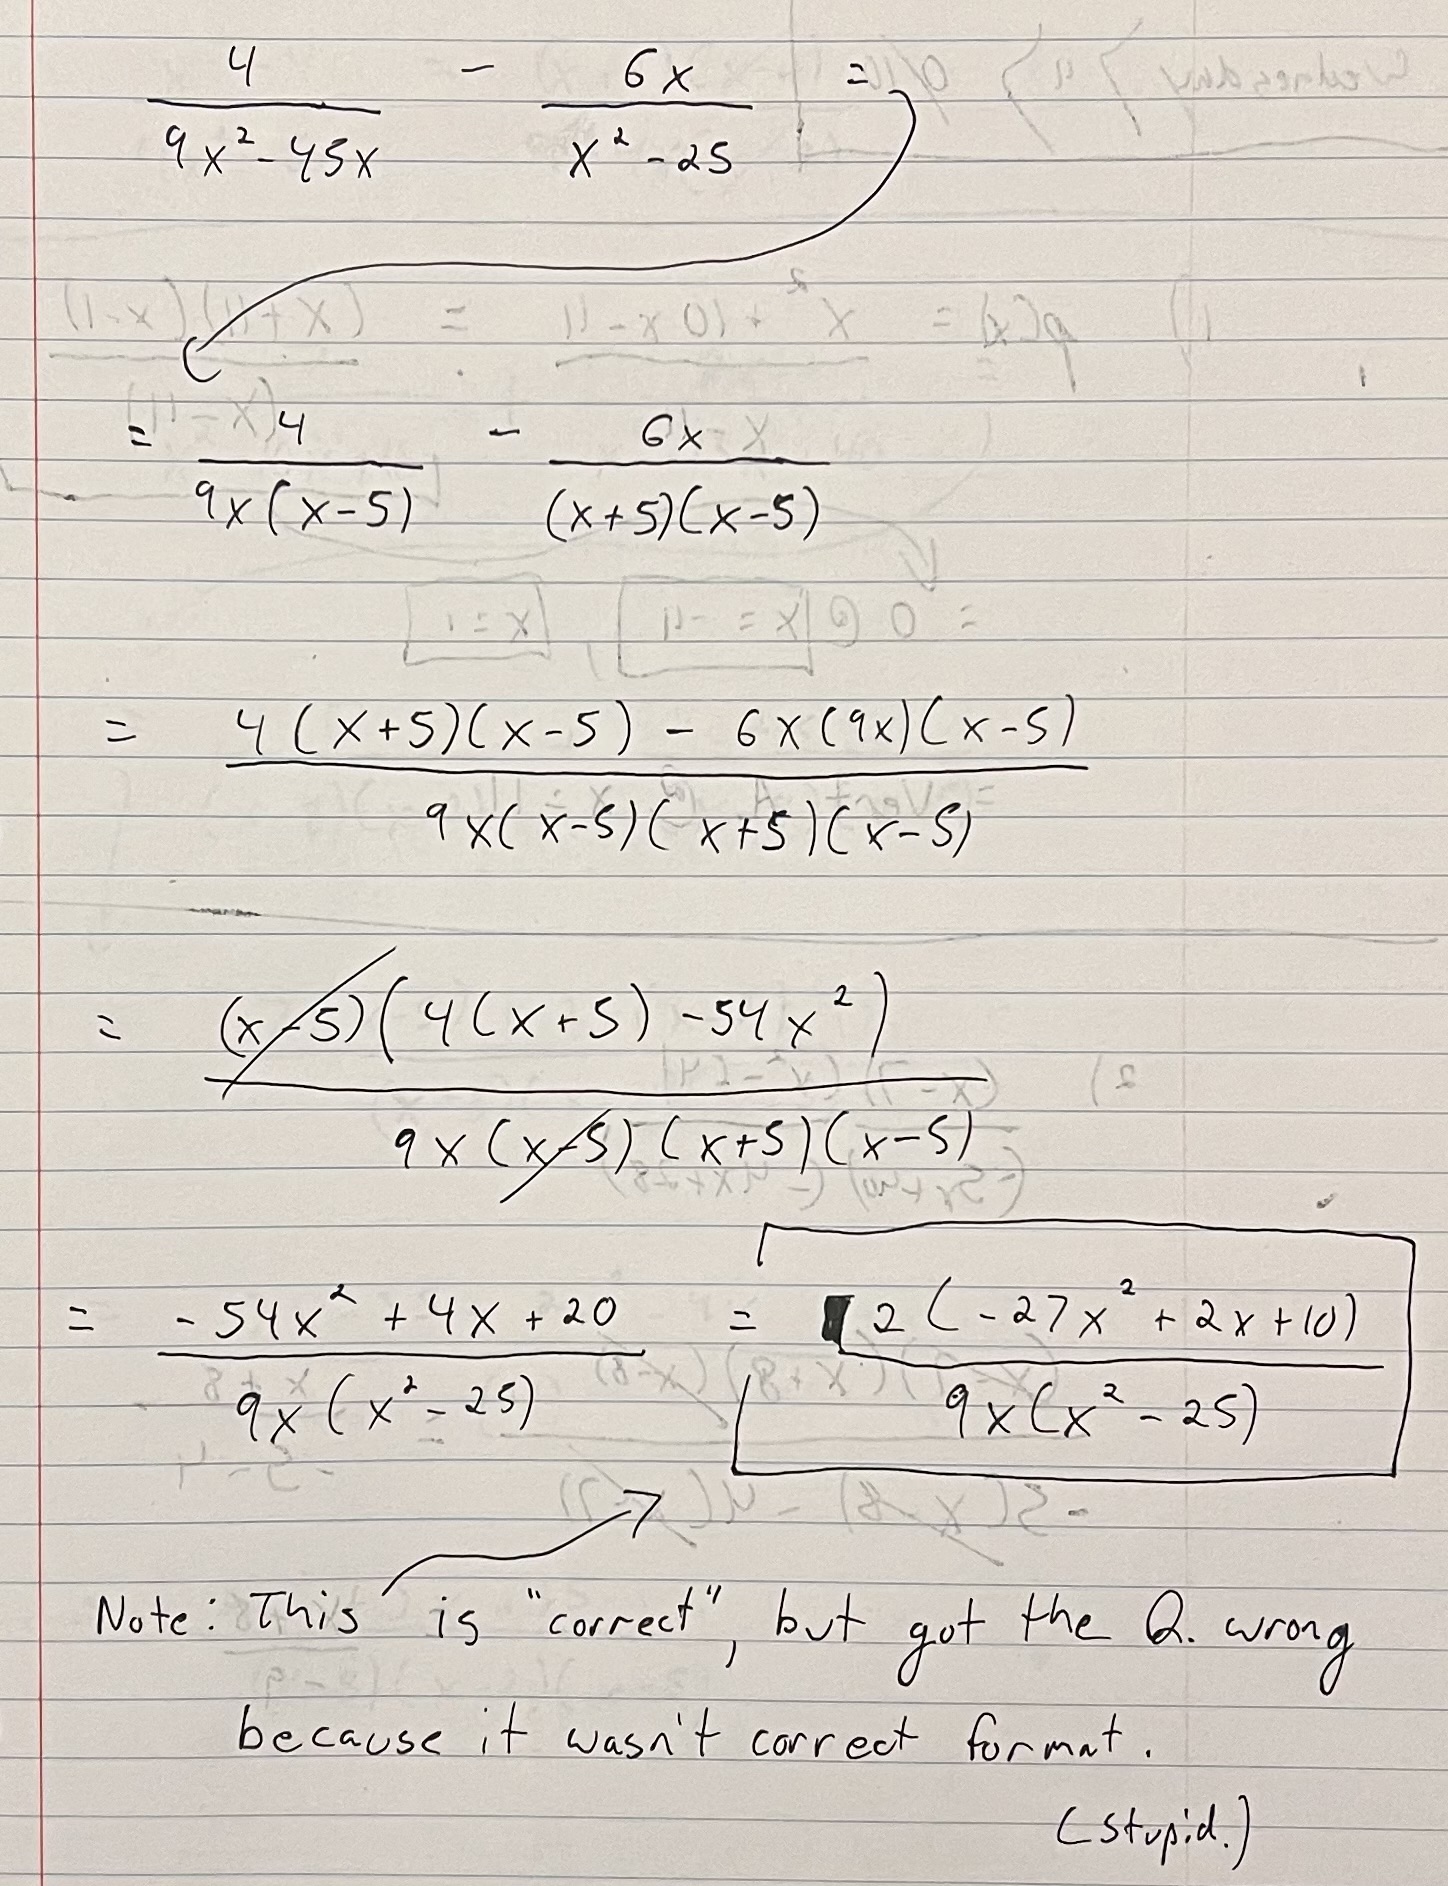 4/(9x² - 45x) - 6x/(x² - 25) =
= 4/(9x(x-5)) - 6x/((x+5)(x-5))
= (4(x+5)(x-5) - 6x(9x)(x-5))/(9x(x-5)(x+5)(x-5))
= ((x-5)(4(x+5) - 54x²))/(9x(x-5)(x+5)(x-5))
= (-54x² + 4x + 20)/(9x(x² - 25)) = 2(-27x² + 2x + 10)/(9x(x² - 25))
Note: This is "correct", but got the Q. wrong
because it wasn't correct format.
(stupid.)